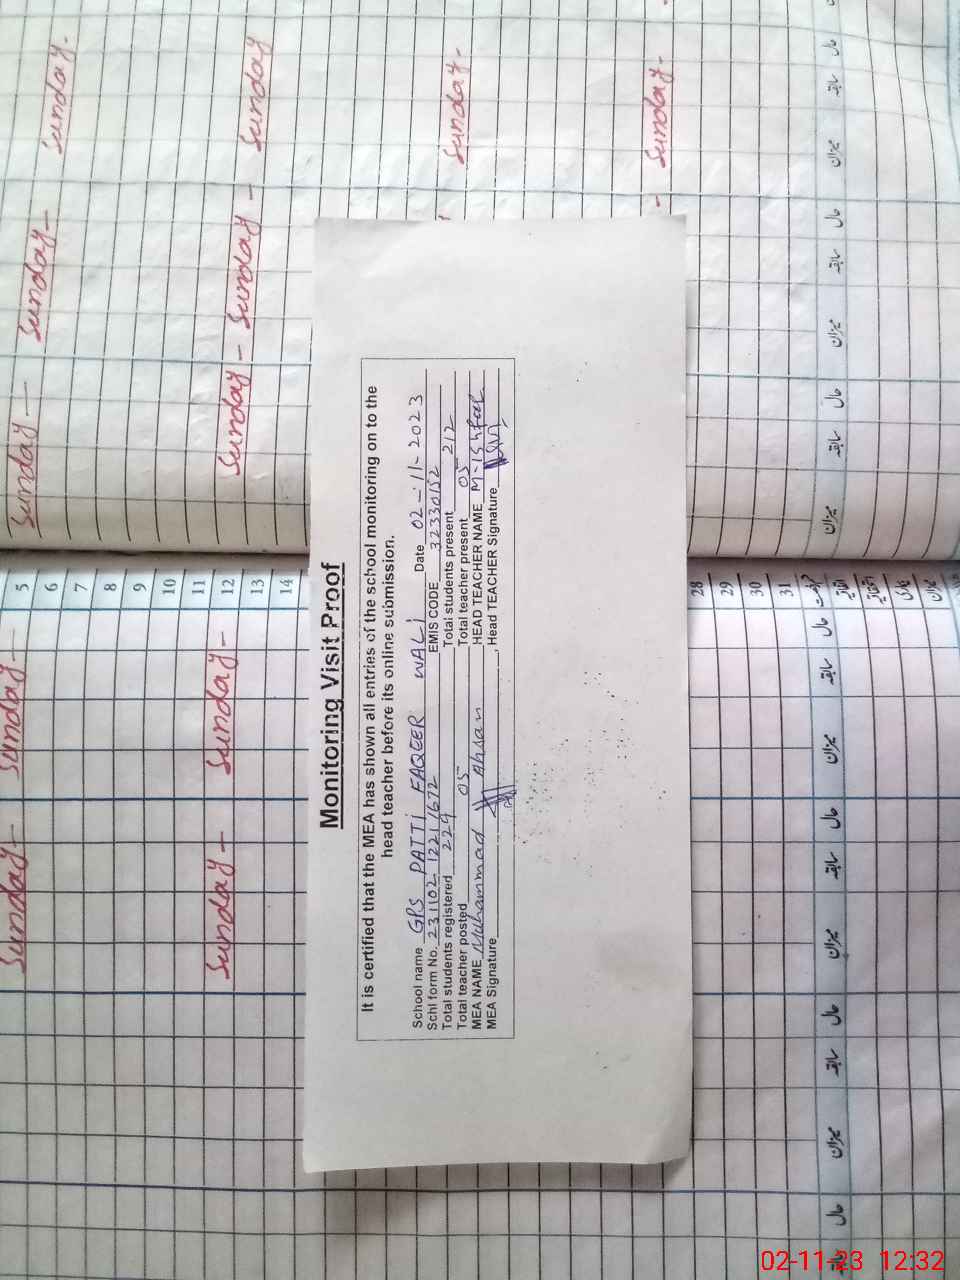 Monitoring Visit Proof
It is certified that the MEA has shown all entries of the school monitoring on to the
head teacher before its online submission.
School name GPS PATTI FAQEER WALI Date 02-11-2023
Schl form No. 231102 12211672 EMIS CODE 32330152
Total students registered 229 Total students present 212
Total teacher posted 05 Total teacher present 05
MEA NAME Muhammad Ahsan HEAD TEACHER NAME M-Ishfaq
MEA Signature , Head TEACHER Signature
Sunday- Sunday- Sunday- Sunday- Sunday-
Sunday- Sunday- Sunday- Sunday- Sunday
Sunday-
Sunday-
5
6
7
8
9
10
11
12
13
14
28
29
30
31
حال سابقہ میزان حال سابقہ میزان حال سابقہ میزان
حال سابقہ میزان حال سابقہ میزان حال سابقہ میزان حال سابقہ
02-11-23 12:32